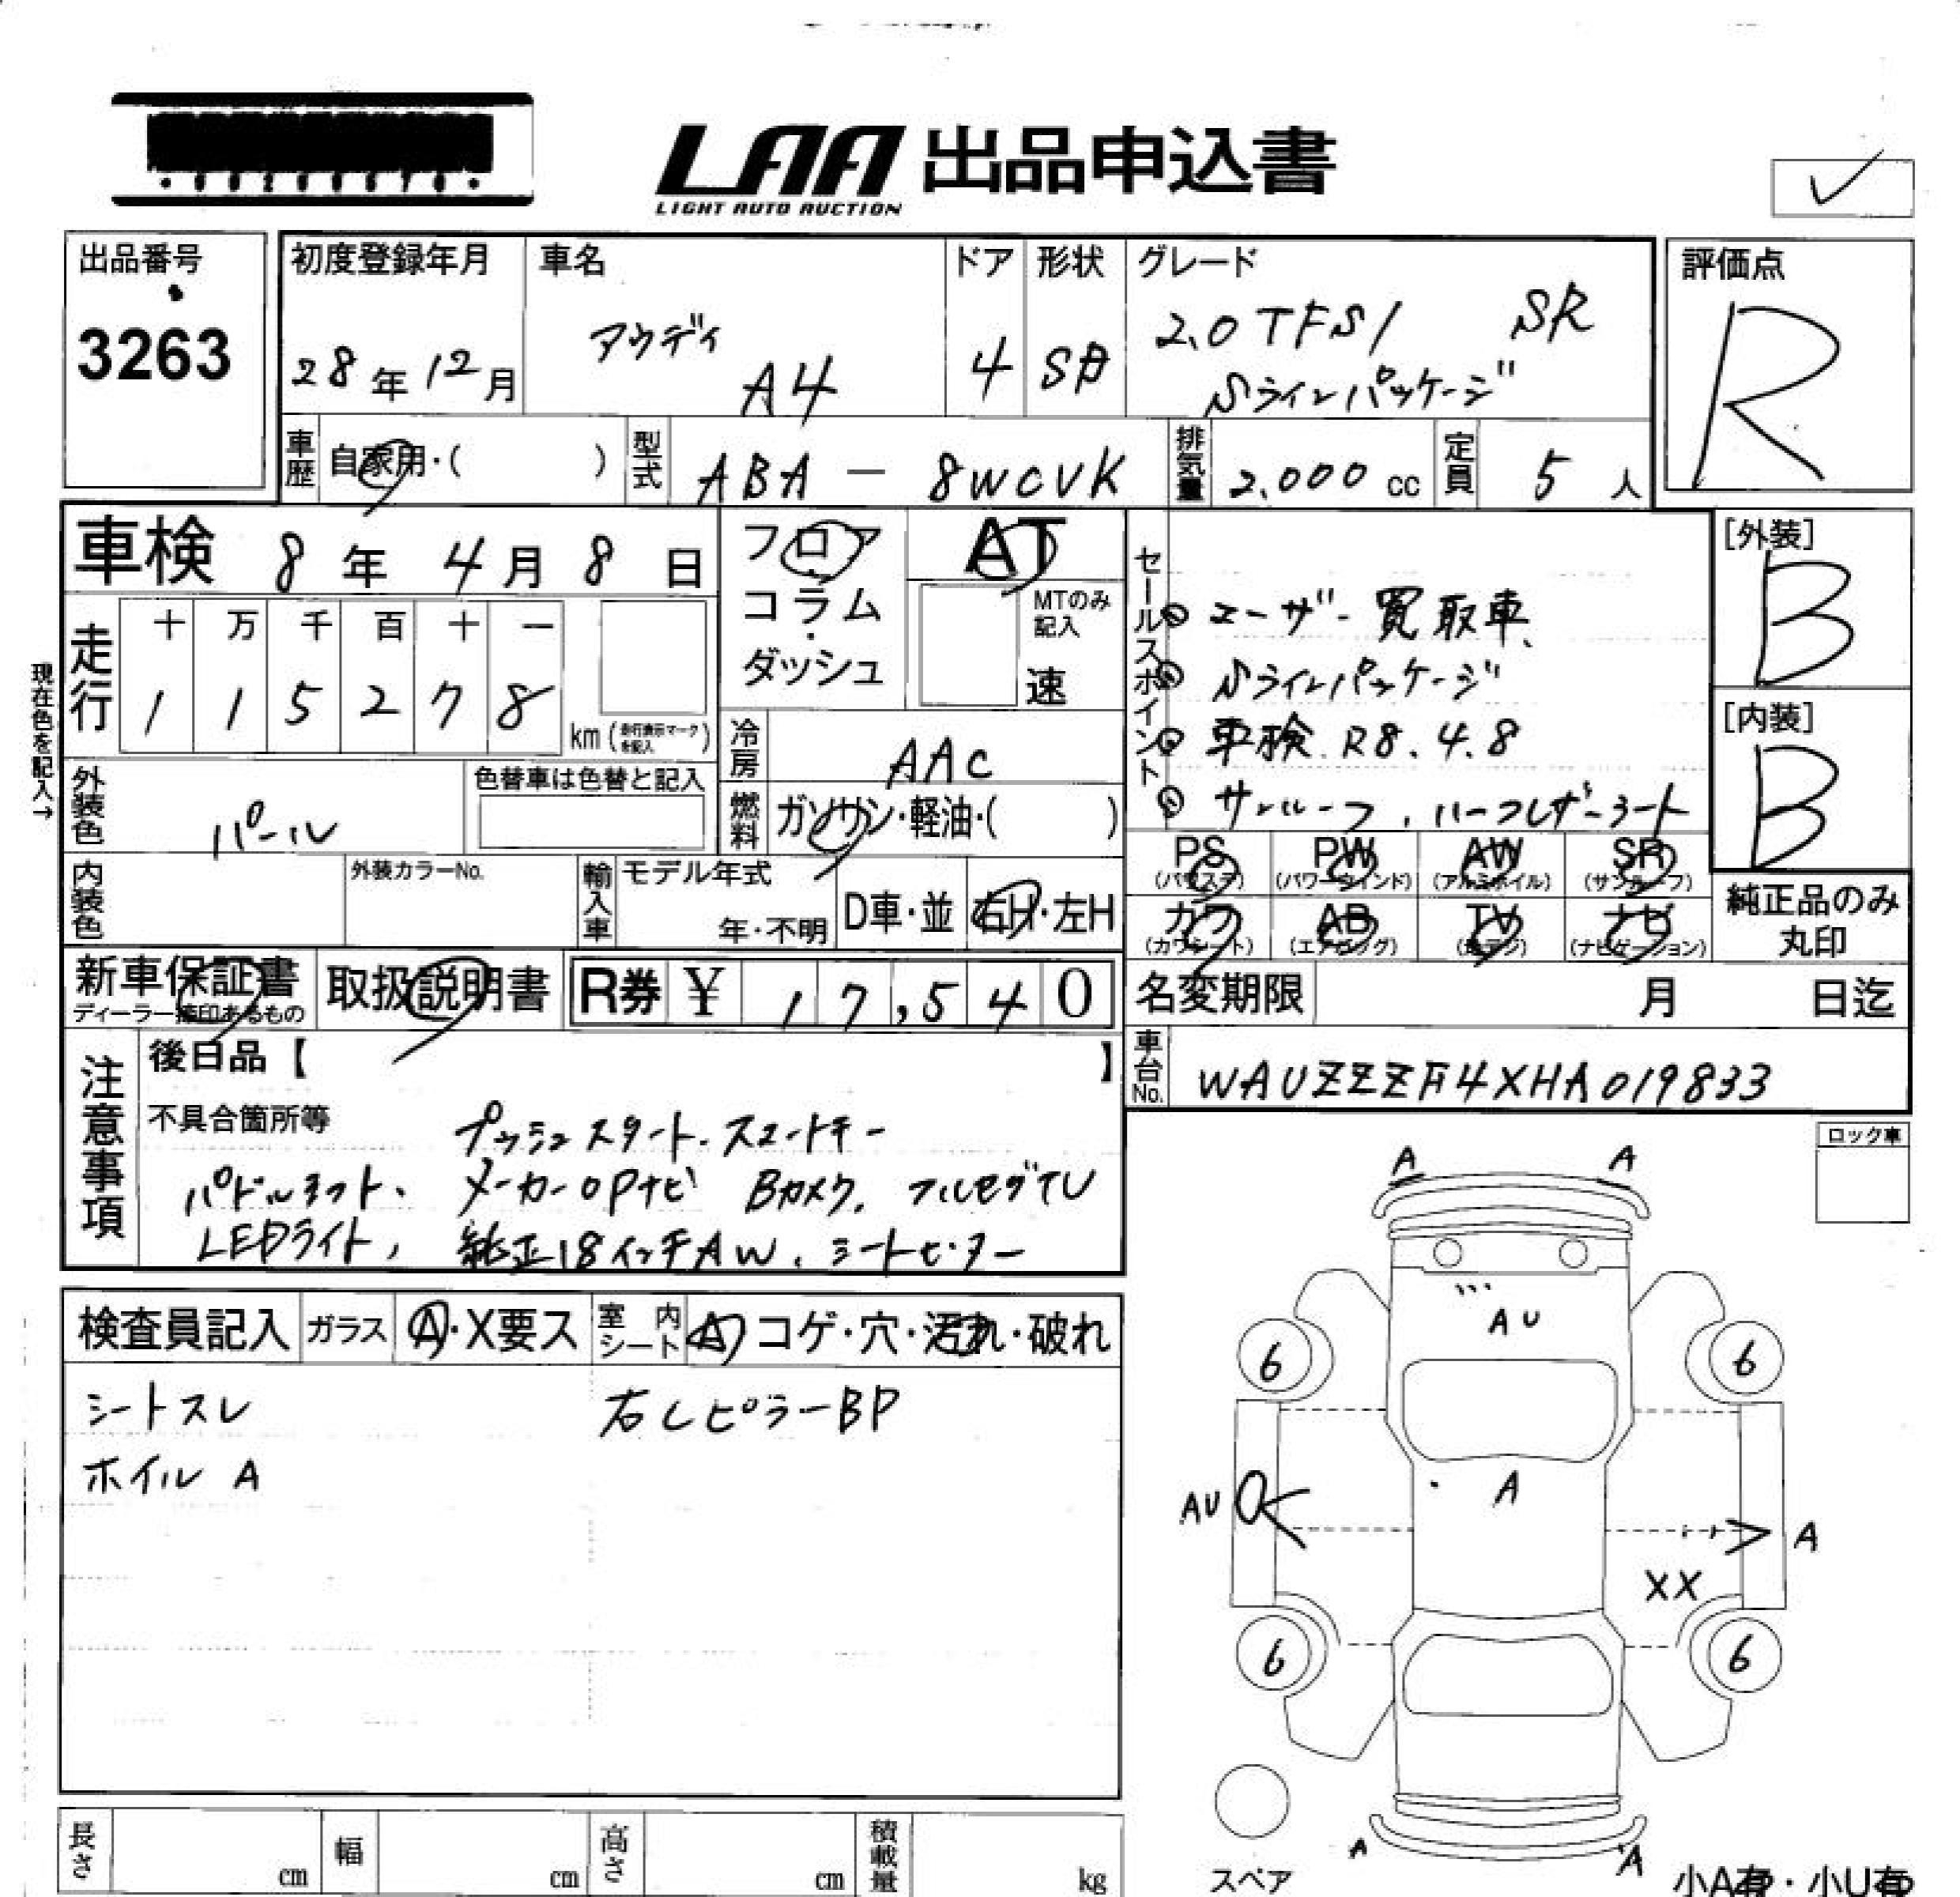 LAA 出品申込書
LIGHT AUTO AUCTION
出品番号
3263
初度登録年月
28年12月
車名
アウディ
A4
ドア
4
形状
SD
グレード
2.0 TFSI SR
Sラインパッケージ
評価点
R
車歴 自家用・( )
型式 ABA - 8WCVK
排気量 2,000 cc
定員 5 人
車検 8年4月8日
フロア
コラム
・
ダッシュ
AT
MTのみ
記入
速
セールスポイント
① ユーザー買取車、
② Sラインパッケージ
③ 車検 R8.4.8
④ サンルーフ、ハーフレザーシート
[外装]
B
[内装]
B
現在色を記入→
走行
十 万 千 百 十 一
1 1 5 2 7 8
km(走行表示マークを記入)
冷房 AAC
燃料 ガソリン・軽油・( )
外装色 パール
色替車は色替と記入
内装色
外装カラーNo.
輸入車
モデル年式
年・不明
D車・並
右H・左H
PS
(パワステ)
PW
(パワーウィンド)
AW
(アルミホイル)
SR
(サンルーフ)
カワ
(カワシート)
AB
(エアバッグ)
TV
(地デジ)
ナビ
(ナビゲーション)
純正品のみ
丸印
新車保証書
ディーラー捺印あるもの
取扱説明書
R券 ¥ 17,540
名変期限 月 日迄
車台No. WAUZZZF4XHA019833
注意事項
後日品【 】
不具合箇所等
プッシュスタート、スマートキー
パドルシフト、メーカーOPナビ Bカメラ、フルセグTV
LEDライト、純正18インチAW、シートヒーター
ロック車
検査員記入
ガラス A・X要ス
室内シート A コゲ・穴・汚れ・破れ
シートスレ
右Cピラー BP
ホイル A
A A
A U
6 6
A
AU
A
XX
6 6
A A
スペア
小A有・小U有
長さ cm
幅 cm
高さ cm
積載量 kg